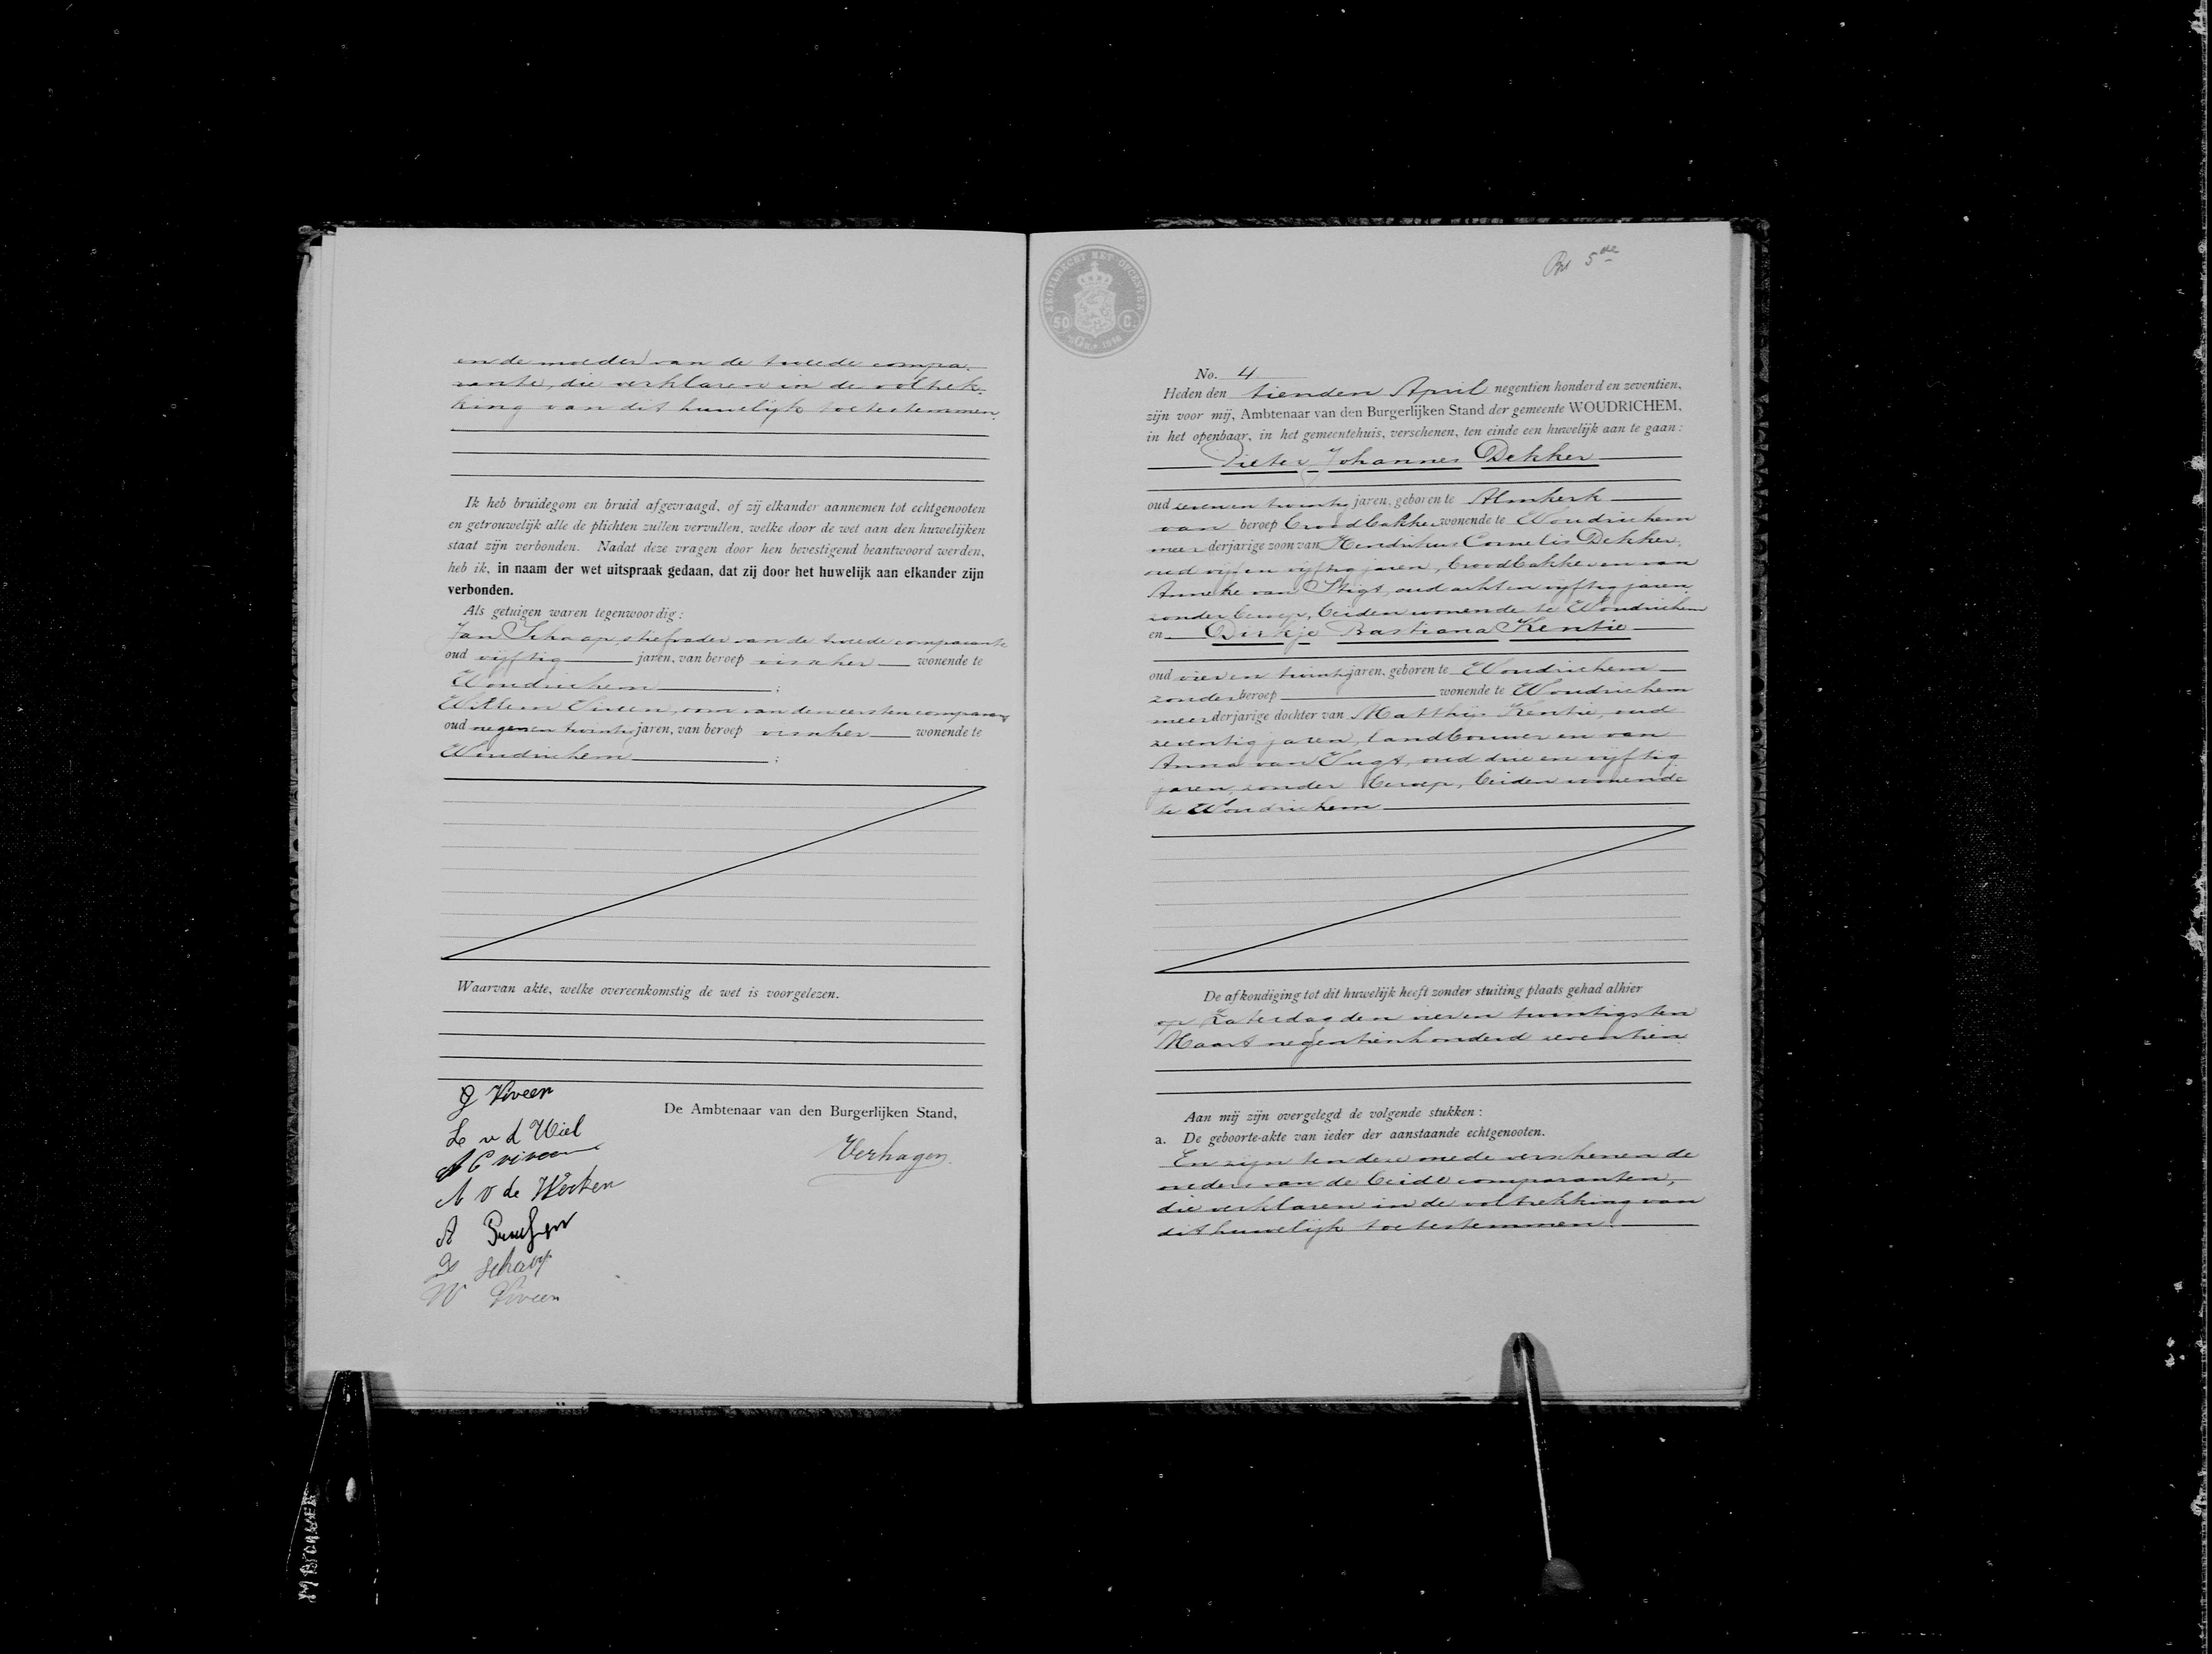 en de moeder van de tweede compa-
rante, die verklaren in de voltrek-
king van dit huwelijk toe te stemmen.
Ik heb bruidegom en bruid afgevraagd, of zij elkander aannemen tot echtgenooten
en getrouwelijk alle de plichten zullen vervullen, welke door de wet aan den huwelijken
staat zijn verbonden. Nadat deze vragen door hen bevestigend beantwoord werden,
heb ik, in naam der wet uitspraak gedaan, dat zij door het huwelijk aan elkander zijn
verbonden.
Als getuigen waren tegenwoordig:
Jan Schaap, stiefvader van de tweede comparante
oud vijftig jaren, van beroep visscher wonende te
Woudrichem ;
Willem Viveen, oom van den eersten comparant
oud negenen twintig jaren, van beroep visscher wonende te
Woudrichem ;
Waarvan akte, welke overeenkomstig de wet is voorgelezen.
G Viveen
L v d Wiel
A C viveen
A v de Werken
A
De Ambtenaar van den Burgerlijken Stand,
Verhagen
J Schaap
W Viveen
5de
ZEGELRECHT MET OPCENTEN
50 C.
No. 4
Heden den tienden April negentien honderd en zeventien,
zijn voor mij, Ambtenaar van den Burgerlijken Stand der gemeente WOUDRICHEM,
in het openbaar, in het gemeentehuis, verschenen, ten einde een huwelijk aan te gaan:
Pieter Johannes Dekker
oud zevenen twintig jaren, geboren te Almkerk
van beroep broodbakker wonende te Woudrichem
meerderjarige zoon van Hendrikus Cornelis Dekker,
oud vijf en vijftig jaren, broodbakker en van
Anneke van Stigt, oud acht en vijftig jaren,
zonder beroep, beiden wonende te Woudrichem
en Dirkje Bastiana Kentie
oud vier en twintig jaren, geboren te Woudrichem
zonder beroep wonende te Woudrichem
meerderjarige dochter van Matthijs Kentie, oud
zeventig jaren, landbouwer en van
Anna van Vugt, oud drie en vijftig
jaren, zonder beroep, beiden wonende
te Woudrichem
De afkondiging tot dit huwelijk heeft zonder stuiting plaats gehad alhier
op Zaterdag den vier en twintigsten
Maart negentienhonderd zeventien
Aan mij zijn overgelegd de volgende stukken:
a. De geboorte-akte van ieder der aanstaande echtgenooten.
En zijn ten deze mede verschenen de
ouders van de beide comparanten,
die verklaren in de voltrekking van
dit huwelijk toe te stemmen.